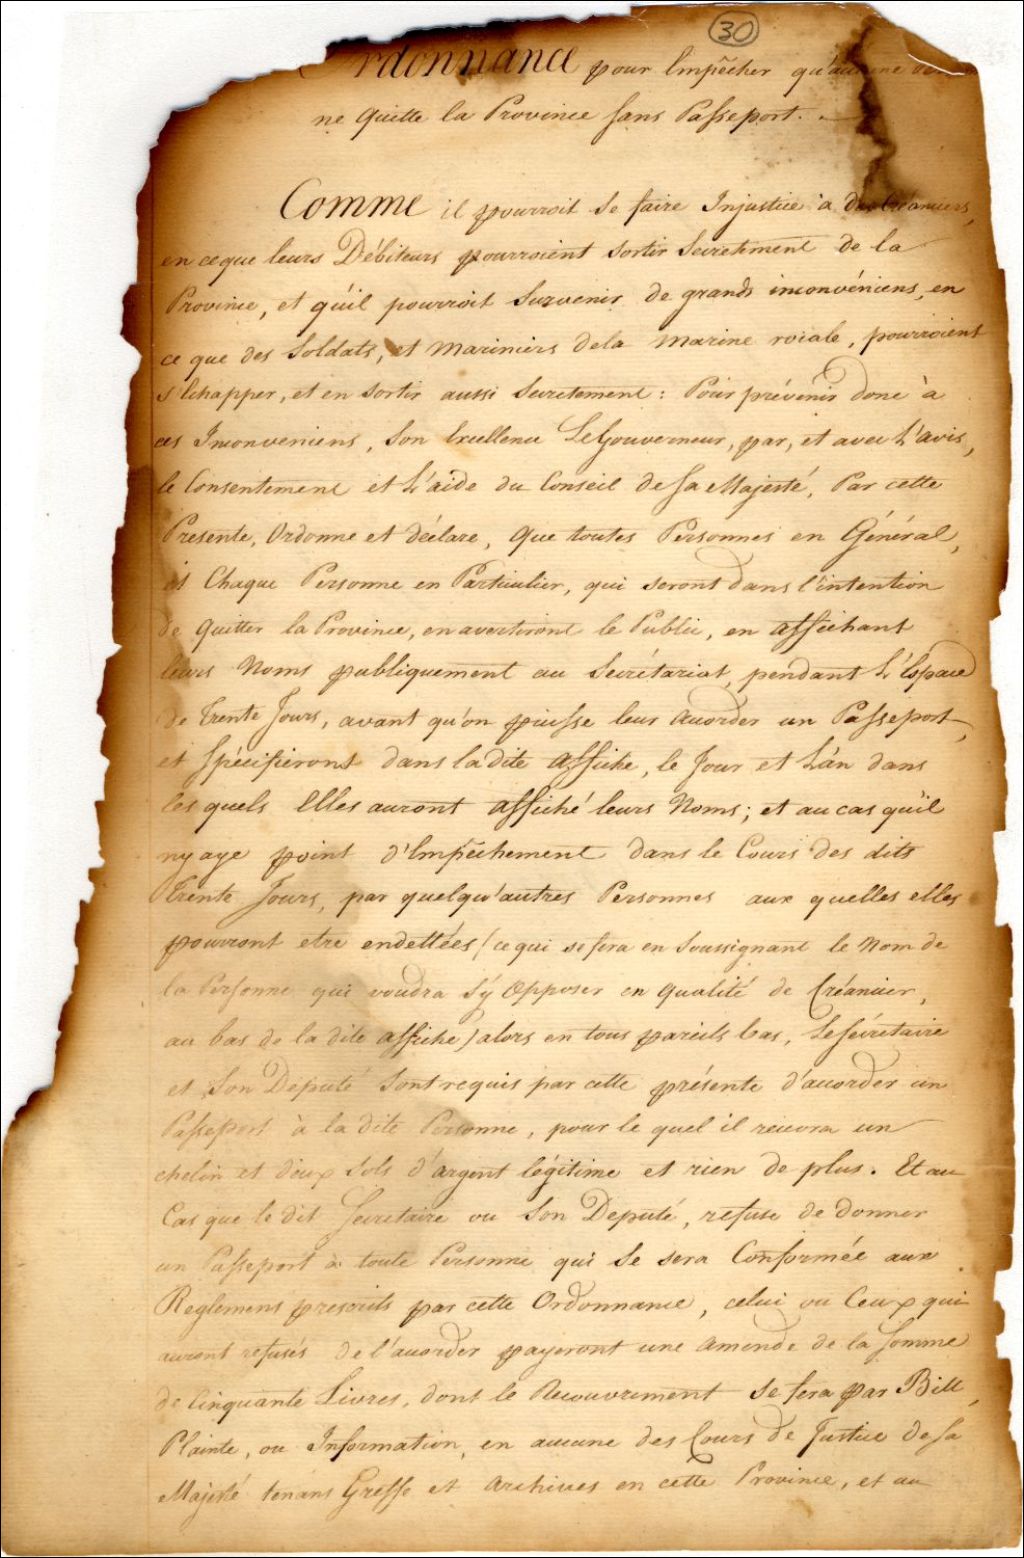 30
Ordonnance pour Empêcher qu'aucune
ne Quitte la Province sans Passeport.
Comme il pourroit se faire Injustice à des Créanciers,
en ce que leurs Débiteurs pourroient sortir secretement de la
Province, et qu'il pourroit survenir de grands inconvéniens, en
ce que des Soldats, et Mariniers de la Marine roiale, pourroient
s'Echapper, et en sortir aussi Secretement: Pour prévenir donc à
ces Inconveniens, Son Excellence Le Gouverneur, par, et avec L'avis,
le Consentement et L'aide du Conseil de Sa Majesté, Par cette
Presente, Ordonne et déclare, Que toutes Personnes en Général,
et Chaque Personne en Particulier, qui seront dans l'intention
de Quitter la Province, en avertiront le Public, en affichant
leurs Noms publiquement au Secrétariat, pendant L'Espace
de Trente Jours, avant qu'on puisse leur accorder un Passeport,
et Spécifieront dans la dite affiche, le Jour et L'an dans
les quels Elles auront affiché leurs Noms; et au cas qu'il
ny aye point d'Empêchement dans le Cours des dits
Trente Jours, par quelqu'autres Personnes aux quelles elles
pourront etre endettées (ce qui se fera en Soussignant le Nom de
la Personne qui voudra s'y Opposer en Qualité de Créancier,
au bas de la dite affiche) alors en tous pareils Cas, Le Sécretaire
et Son Deputé sont requis par cette présente d'accorder un
Passeport à la dite Personne, pour le quel il recevra un
chelin et deux Sols d'argent légitime et rien de plus. Et au
Cas que le dit Secretaire ou Son Deputé, refuse de donner
un Passeport à toute Personne qui se sera Conformée aux
Reglemens prescrits par cette Ordonnance, celui ou Ceux qui
auront refusés de l'accorder payeront une Amende de la Somme
de Cinquante Livres, dont le Recouvrement se fera par Bill,
Plainte, ou Information, en aucune des Cours de Justice de Sa
Majesté tenans Greffe et Archives en cette Province, et au